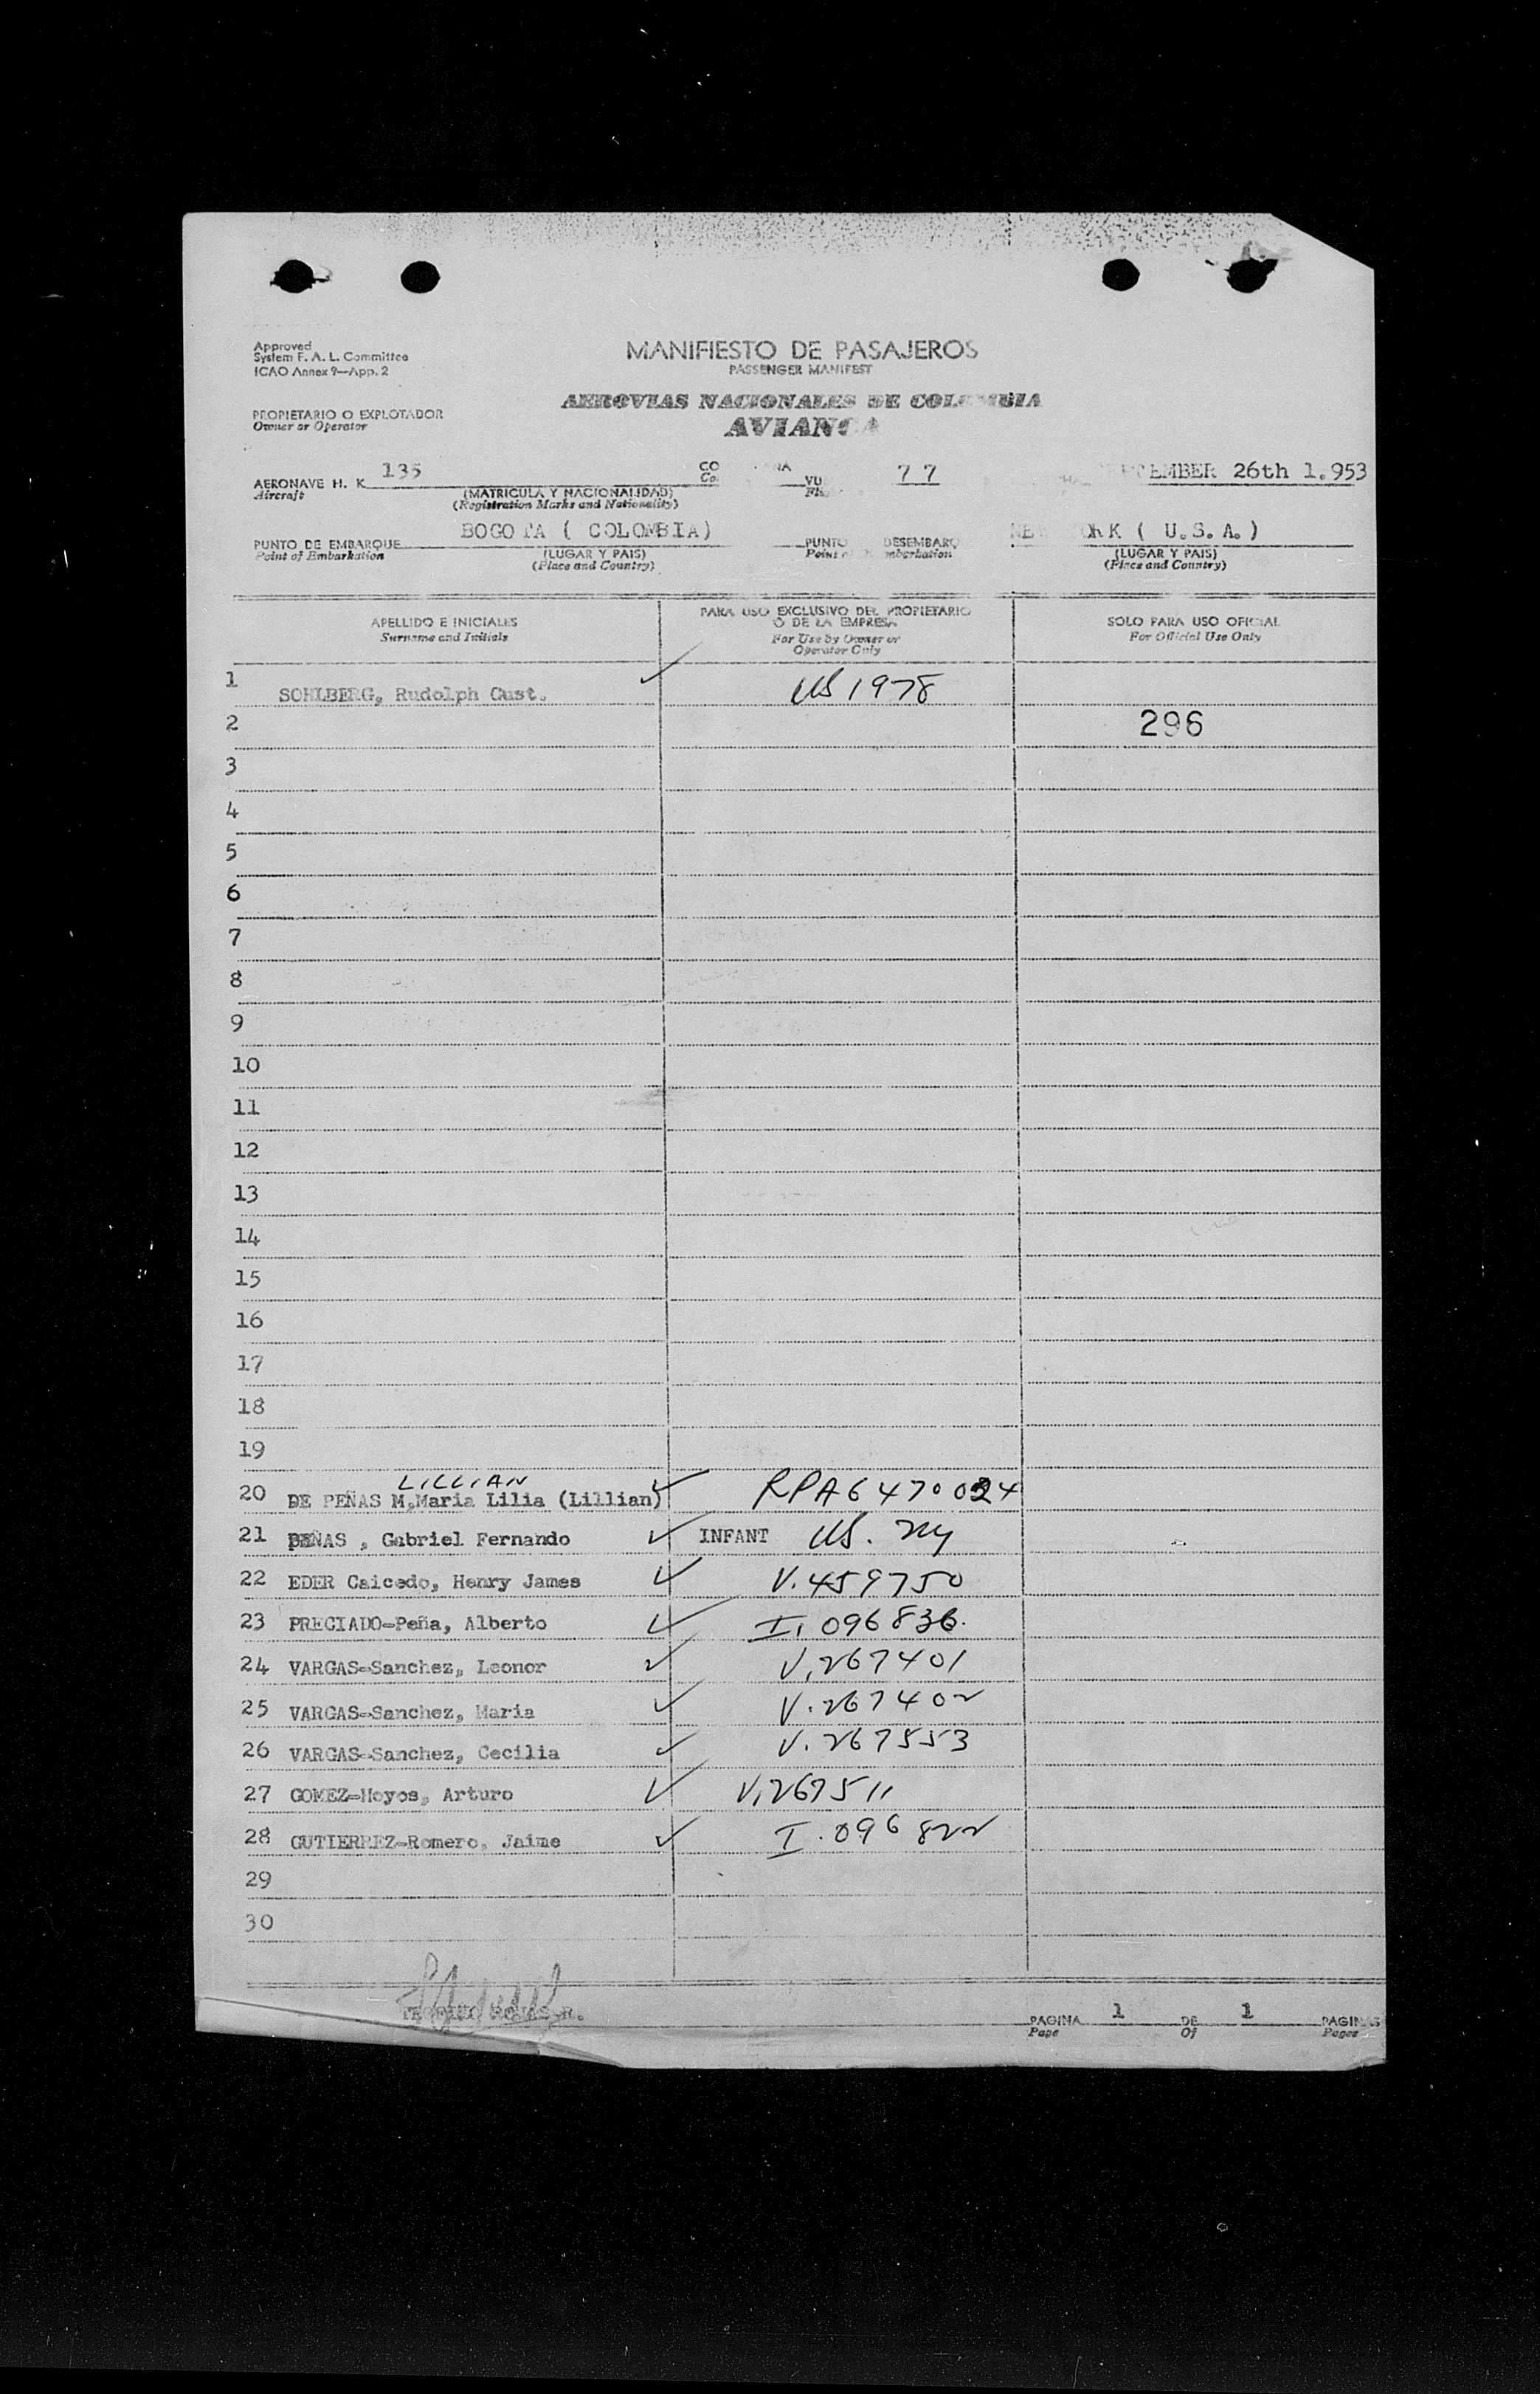 Approved
System F. A. L. Committee
ICAO Annex 9—App. 2
MANIFIESTO DE PASAJEROS
PASSENGER MANIFEST
PROPIETARIO O EXPLOTADOR
Owner or Operator
AEROVIAS NACIONALES DE COLOMBIA
AVIANCA
AERONAVE H. K. 135
Aircraft
(MATRICULA Y NACIONALIDAD)
(Registration Marks and Nationality)
77
SEPTEMBER 26th 1.953
PUNTO DE EMBARQUE BOGOTA ( COLOMBIA)
Point of Embarkation
(LUGAR Y PAIS)
(Place and Country)
PUNTO DESEMBARQ NEW YORK ( U.S.A.)
Point of mbarkation
(LUGAR Y PAIS)
(Place and Country)
APELLIDO E INICIALES
Surname and Initials
PARA USO EXCLUSIVO DEL PROPIETARIO
O DE LA EMPRESA
For Use by Owner or
Operator Only
SOLO PARA USO OFICIAL
For Official Use Only
1 SOHLBERG, Rudolph Cust. US 1978
2 296
3
4
5
6
7
8
9
10
11
12
13
14
15
16
17
18
19
LILLIAN
20 DE PEÑAS M,Maria Lilia (Lillian) RPA6470024
21 PEÑAS , Gabriel Fernando INFANT US. NY
22 EDER Caicedo, Henry James V.459750
23 PRECIADO-Peña, Alberto I. 096836.
24 VARGAS-Sanchez, Leonor V.267401
25 VARGAS-Sanchez, Maria V.267402
26 VARGAS-Sanchez, Cecilia V.267553
27 GOMEZ-Hoyos, Arturo V.267511
28 GUTIERREZ-Romero, Jaime I.096822
29
30
PAGINA 1 DE 1 PAGINAS
Page Of Pages